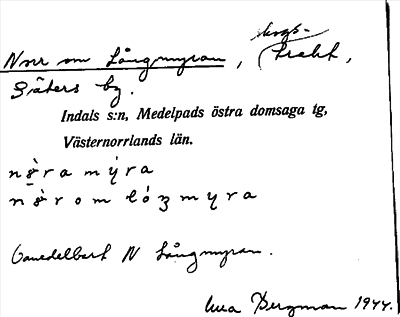 skogs-
Norr om Långmyran, trakt,
Säters by.
Indals s:n, Medelpads östra domsaga tg,
Västernorrlands län.
nèra mýra
nèrom lóŋmyra
Omedelbart N Långmyran.
Bergman 1944.